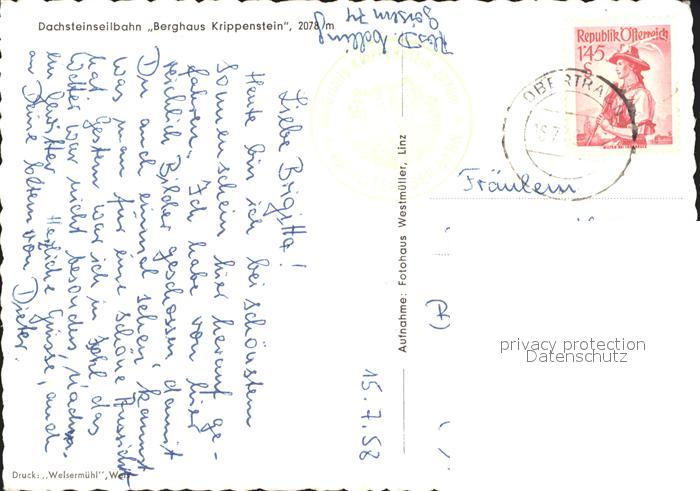 Dachsteinseilbahn „Berghaus Krippenstein", 2078 m
Abs. D.
Republik Österreich
1'45
S
OBERTRA
Fräulein
Liebe Brigitta!
Heute bin ich bei schönstem
Sonnenschein hier herauf ge-
fahren. Ich habe von hier
reichlich Bilder geschossen, damit
Du auch einmal sehen kannst
was man für eine schöne Aussicht
hat. Gestern war ich in das
Wetter war nicht besonders, nachm.
ein Gewitter. Herzliche Grüsse, auch
an Deine Eltern von Dieter.
15.7.58
Aufnahme: Fotohaus Westmüller, Linz
Druck: „Welsermühl", Wels
privacy protection
Datenschutz